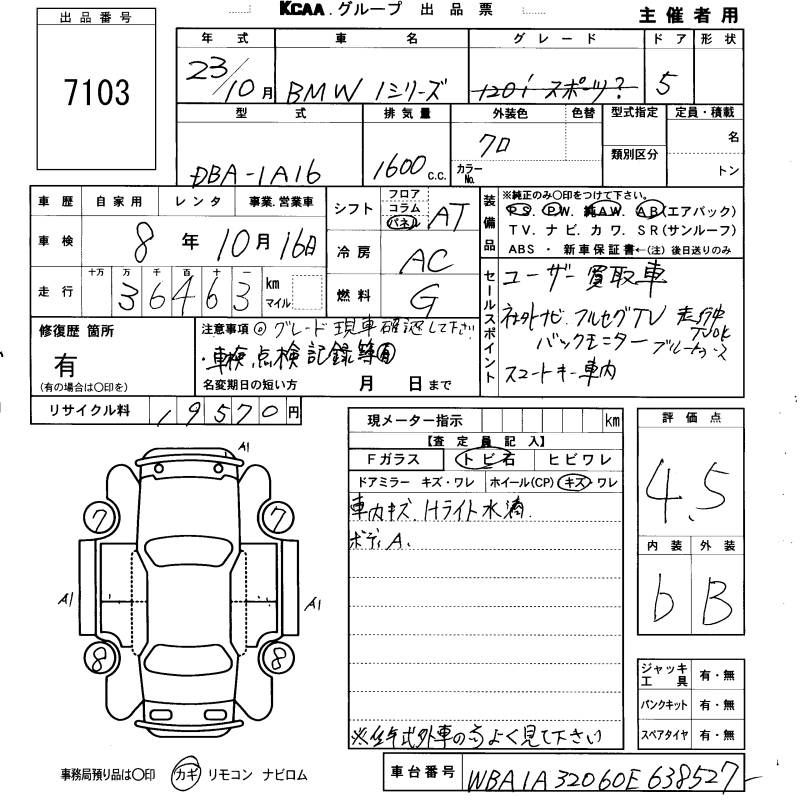 KCAA.グループ 出品票
主催者用
出品番号
7103
年式 車名 グレード ドア 形状
23/10月 BMW 1シリーズ 120i スポーツ? 5
型式 排気量 外装色 色替 型式指定 定員・積載
DBA-1A16 1600 c.c. クロ カラーNo. 類別区分 名
トン
車歴 自家用 レンタ 事業.営業車
車検 8年10月16日
走行 十万 万 千 百 十 一
36463 km マイル
シフト フロア コラム パネル AT
冷房 AC
燃料 G
装備品 ※純正のみ〇印をつけて下さい。
PS. PW. 純AW. AB(エアバック)
TV. ナビ. カワ. SR(サンルーフ)
ABS ・ 新車保証書←(注) 後日送りのみ
セールスポイント
ユーザー買取車
社外ナビ フルセグTV 走行中TVOK
バックモニター ブルートゥース
スマートキー車内
修復歴 箇所
有
(有の場合は〇印を)
注意事項 ◎グレード現車確認して下さい
・車検点検記録簿有
名変期日の短い方 月 日まで
リサイクル料 19570円
現メーター指示 km
【査定員記入】
Fガラス トビ石 ヒビワレ
ドアミラー キズ・ワレ ホイール(CP) キズ・ワレ
車内キズ. Hライト水滴.
ボディA.
よく見て下さい
評価点
4.5
内装 外装
b B
A1
7 7
A1 A1
8 8
ジャッキ工具 有・無
パンクキット 有・無
スペアタイヤ 有・無
事務局預り品は〇印 カギ リモコン ナビロム
車台番号 WBA1A32060E638527